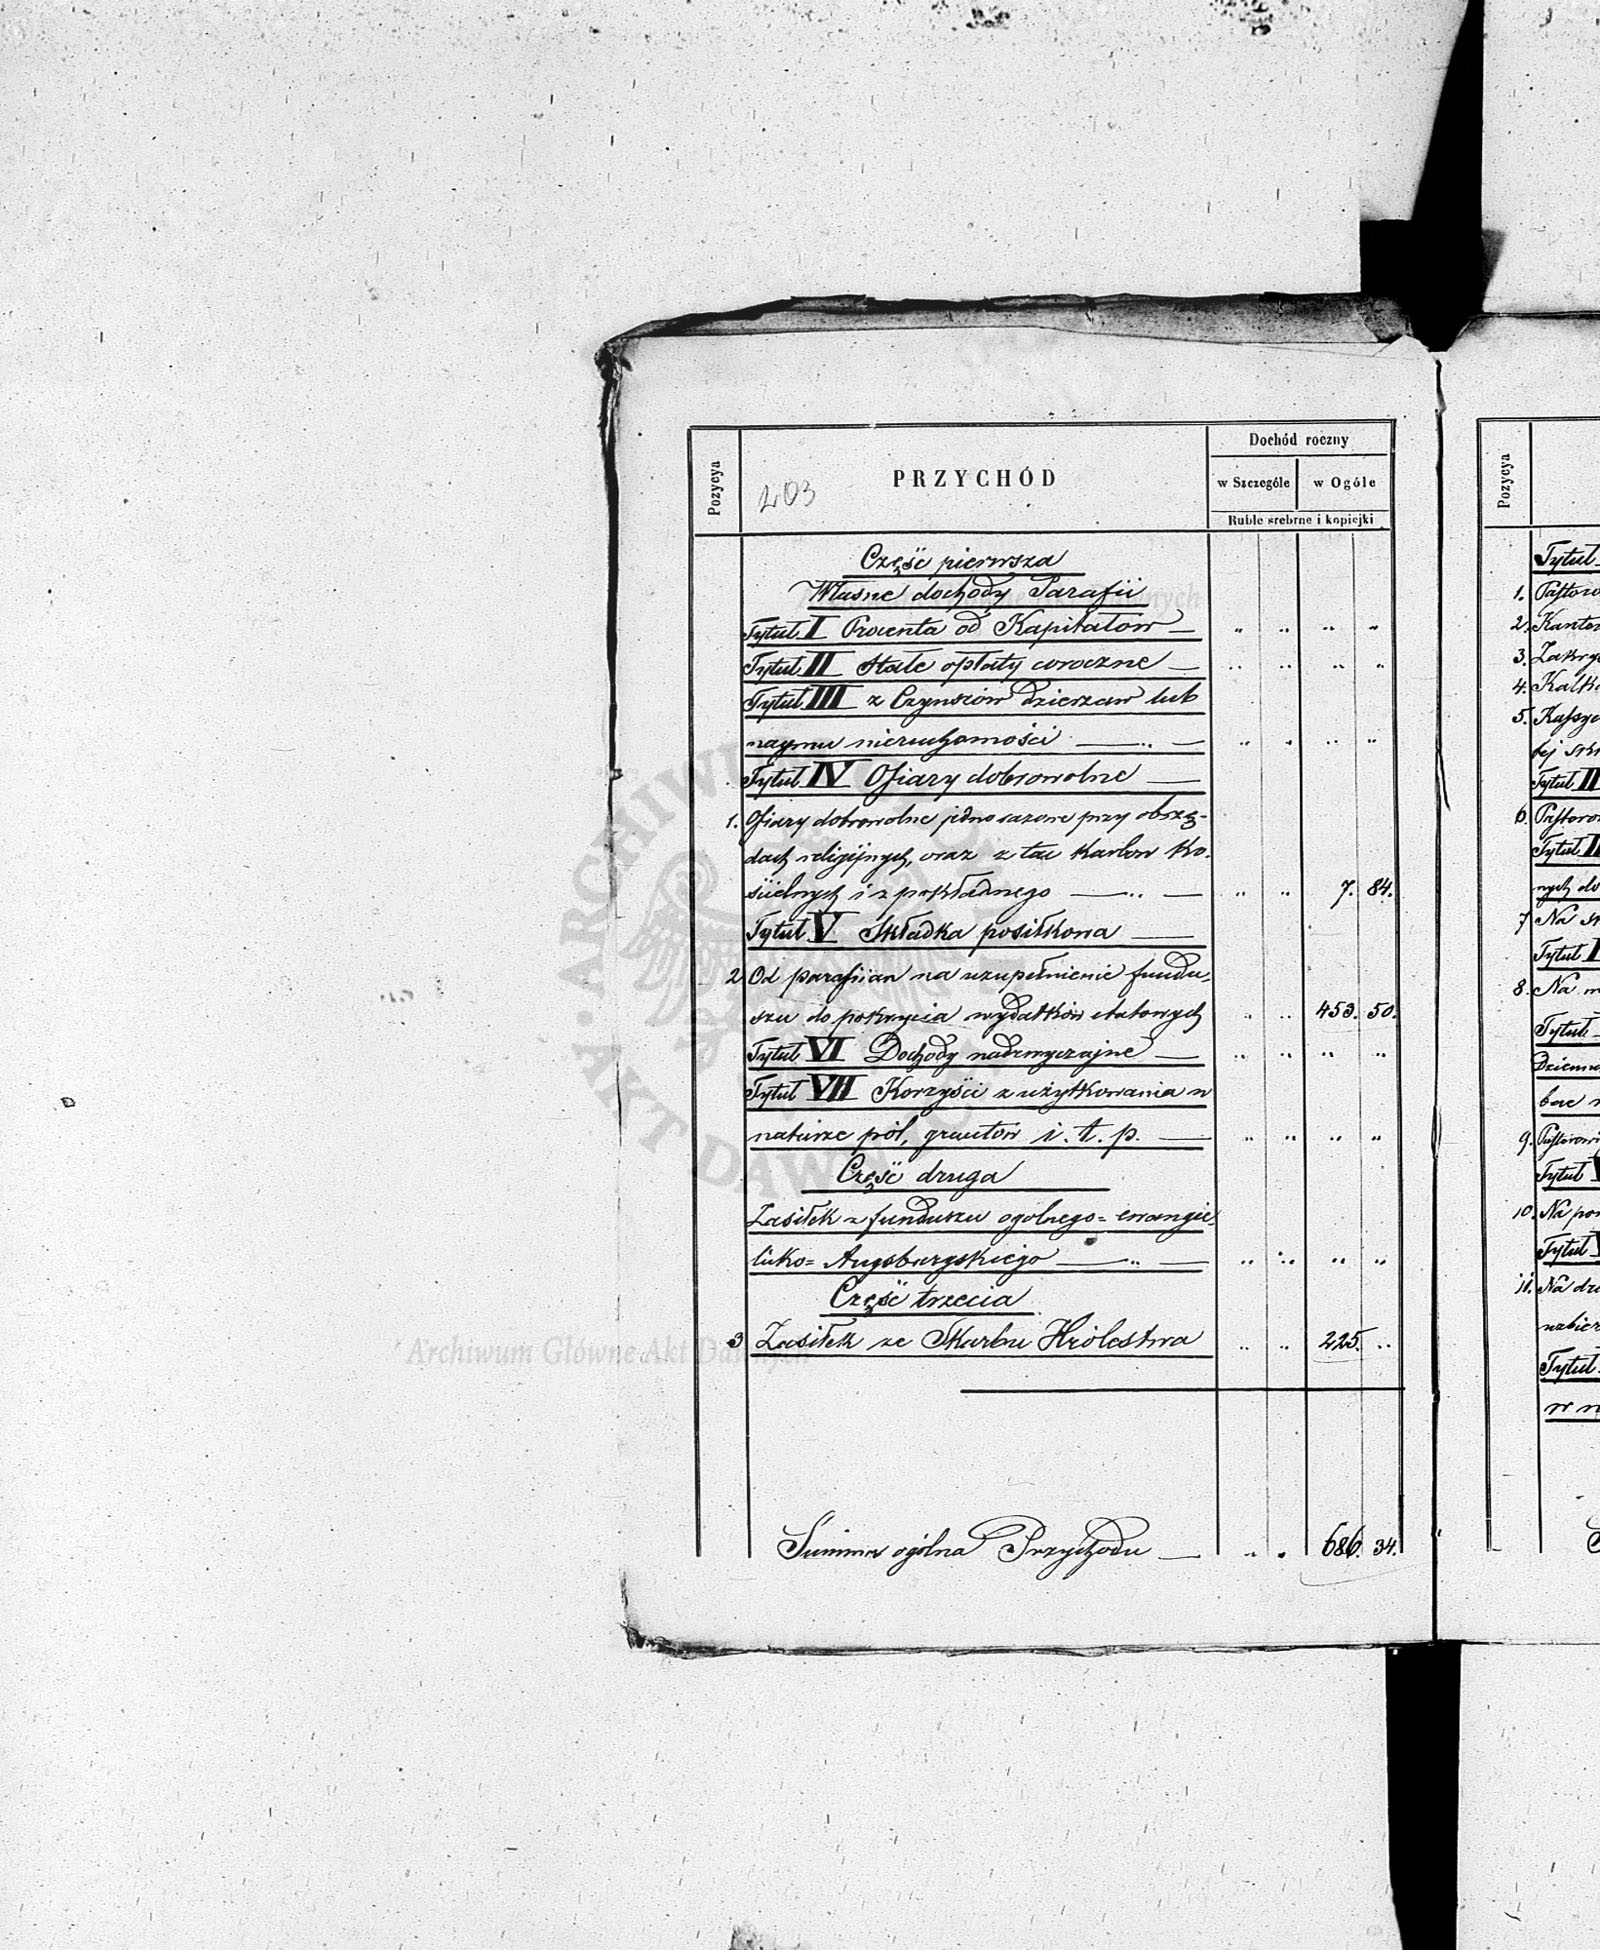 Pozycya
203
PRZYCHÓD
Dochód roczny
w Szczególe
w Ogóle
Ruble srebrne i kopiejki
Część pierwsza
Własne dochody Parafii
Tytuł I Procenta od Kapitałów — " " " "
Tytuł II Stałe opłaty coroczne — " " " "
Tytuł III z Czynszów Dzierżaw lub
naymu nieruchomości — " — " " " "
Tytuł IV Ofiary dobrowolne —
1. Ofiary dobrowolne jedno razowe przy obrzę-
dach religijnych, oraz z tac Karbon Ko-
ścielnych i z pokładnego — " — " " 7. 84.
Tytuł V Składka posiłkowa —
2 Od parafian na uzupełnienie fundu-
szu do pokrycia wydatków etatowych " " 453. 50.
Tytuł VI Dochody nadzwyczajne — " " " "
Tytuł VII Korzyści z użytkowania w
naturze pól, gruntów i. t. p. — " " " "
Część druga
Zasiłek z funduszu ogolnego = ewangie-
licko = Augsburgskiego — " — " " " "
Część trzecia
3 Zasiłek ze Skarbu Królestwa " " 225. "
Summa ogólna Przychodu — " " 686. 34.
Pozycya
Tytuł
1. Pastoro
2. Kantor
3. Zakry
4. Kalk
5.
Tytuł II
6. Pastorow
Tytuł I
nych do
7 Na
Tytuł
8. Na
Tytuł
9. Pastorowi
Tytuł V
10. Na
Tytuł V
11. Na
Tytuł
ARCHIWUM
AKT DAWNYCH
Archiwum Główne Akt Dawnych